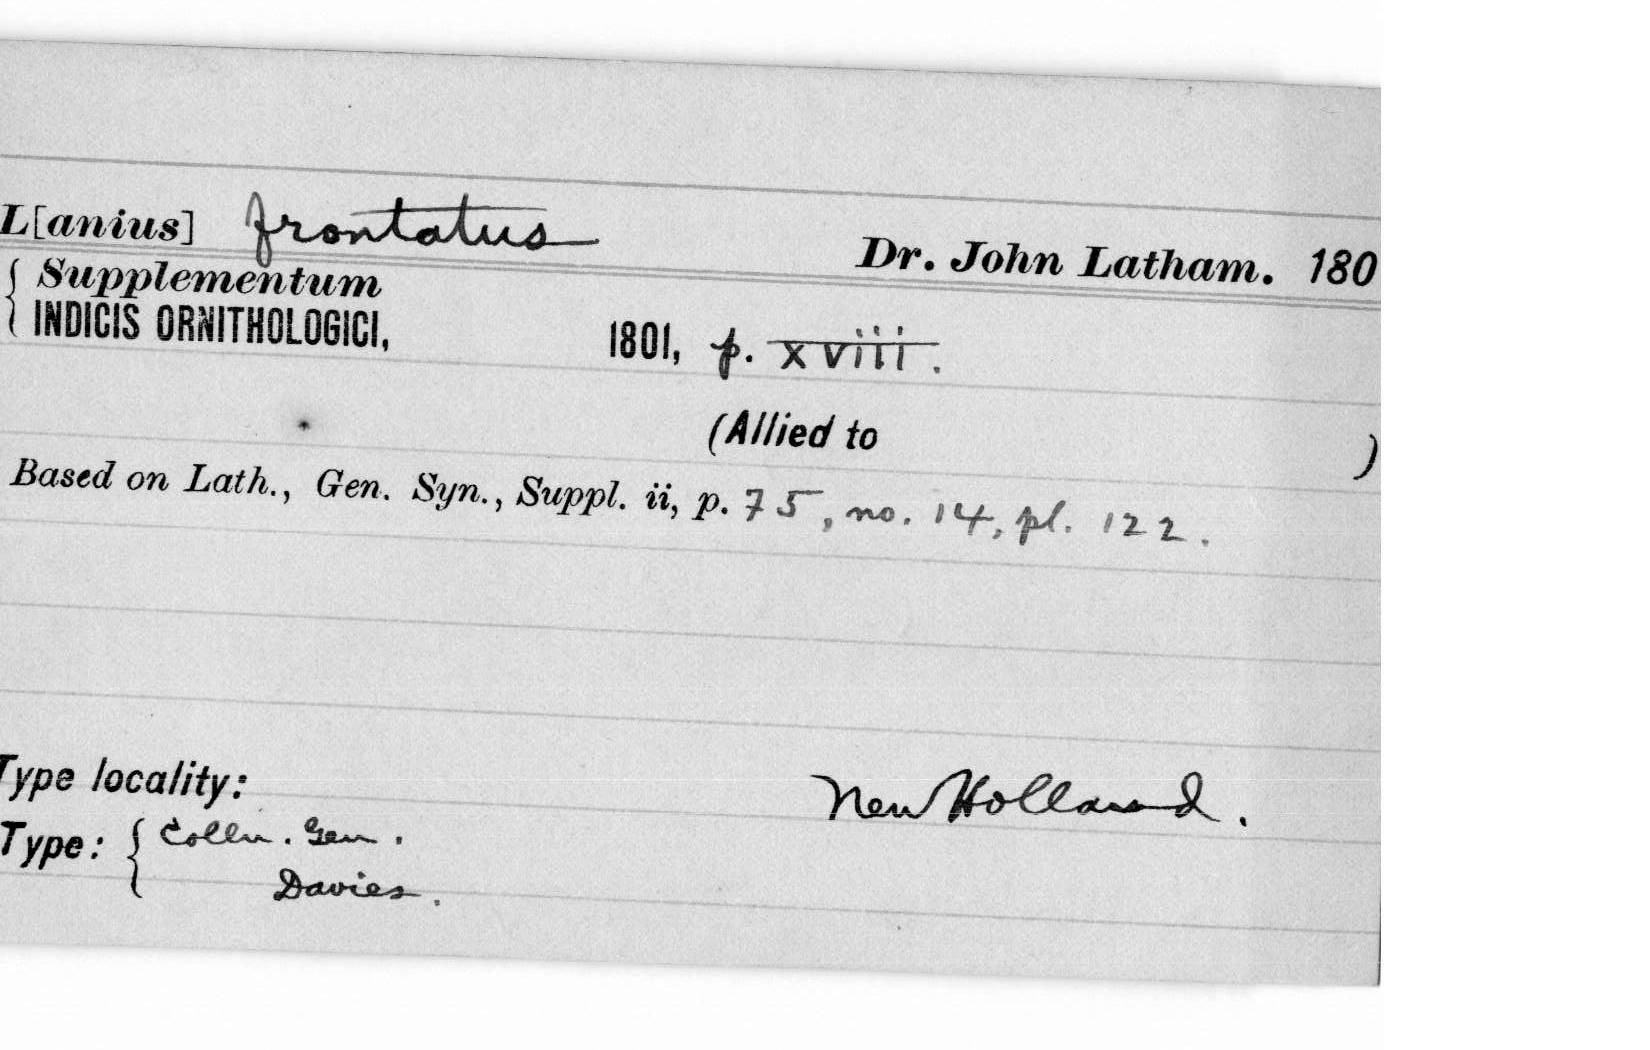 L[anius] frontatus Dr. John Latham. 180
Supplementum
INDICIS ORNITHOLOGICI, 1801, p. xviii.
(Allied to )
Based on Lath., Gen. Syn., Suppl. ii, p. 75, no. 14, pl. 122.
Type locality: New Holland.
Type: { Colln. Gen.
Davies.